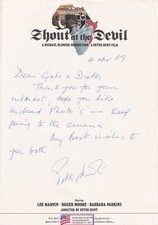 Shout at the Devil
A MICHAEL KLINGER PRODUCTION • A PETER HUNT FILM
4 Nov 89
Dear Gabi &
Thank you for your
interest. Hope you like
enclosed Photo's — Keep
going to the cinema
My Best wishes to
you both
Starring
LEE MARVIN • ROGER MOORE • BARBARA PARKINS
DIRECTED BY PETER HUNT